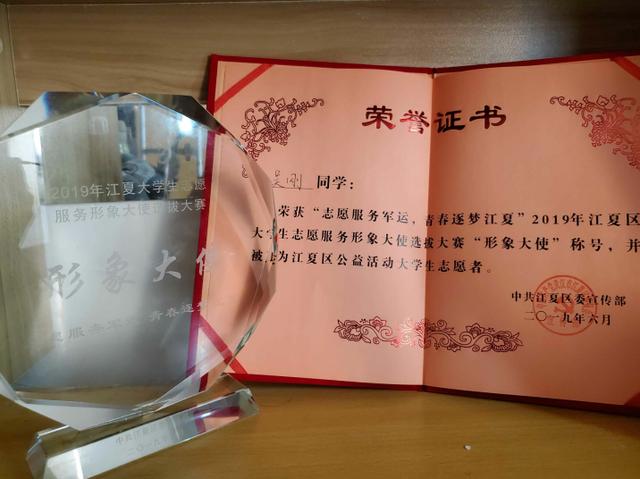 2019年江夏大学生志愿
服务形象大使选拔大赛
形象大使
愿服务军运 青春逐
中共江
二〇一九
荣誉证书
吴刚 同学：
荣获“志愿服务军运，青春逐梦江夏”2019年江夏区
大学生志愿服务形象大使选拔大赛“形象大使”称号，并
被为江夏区公益活动大学生志愿者。
中共江夏区委宣传部
二〇一九年六月